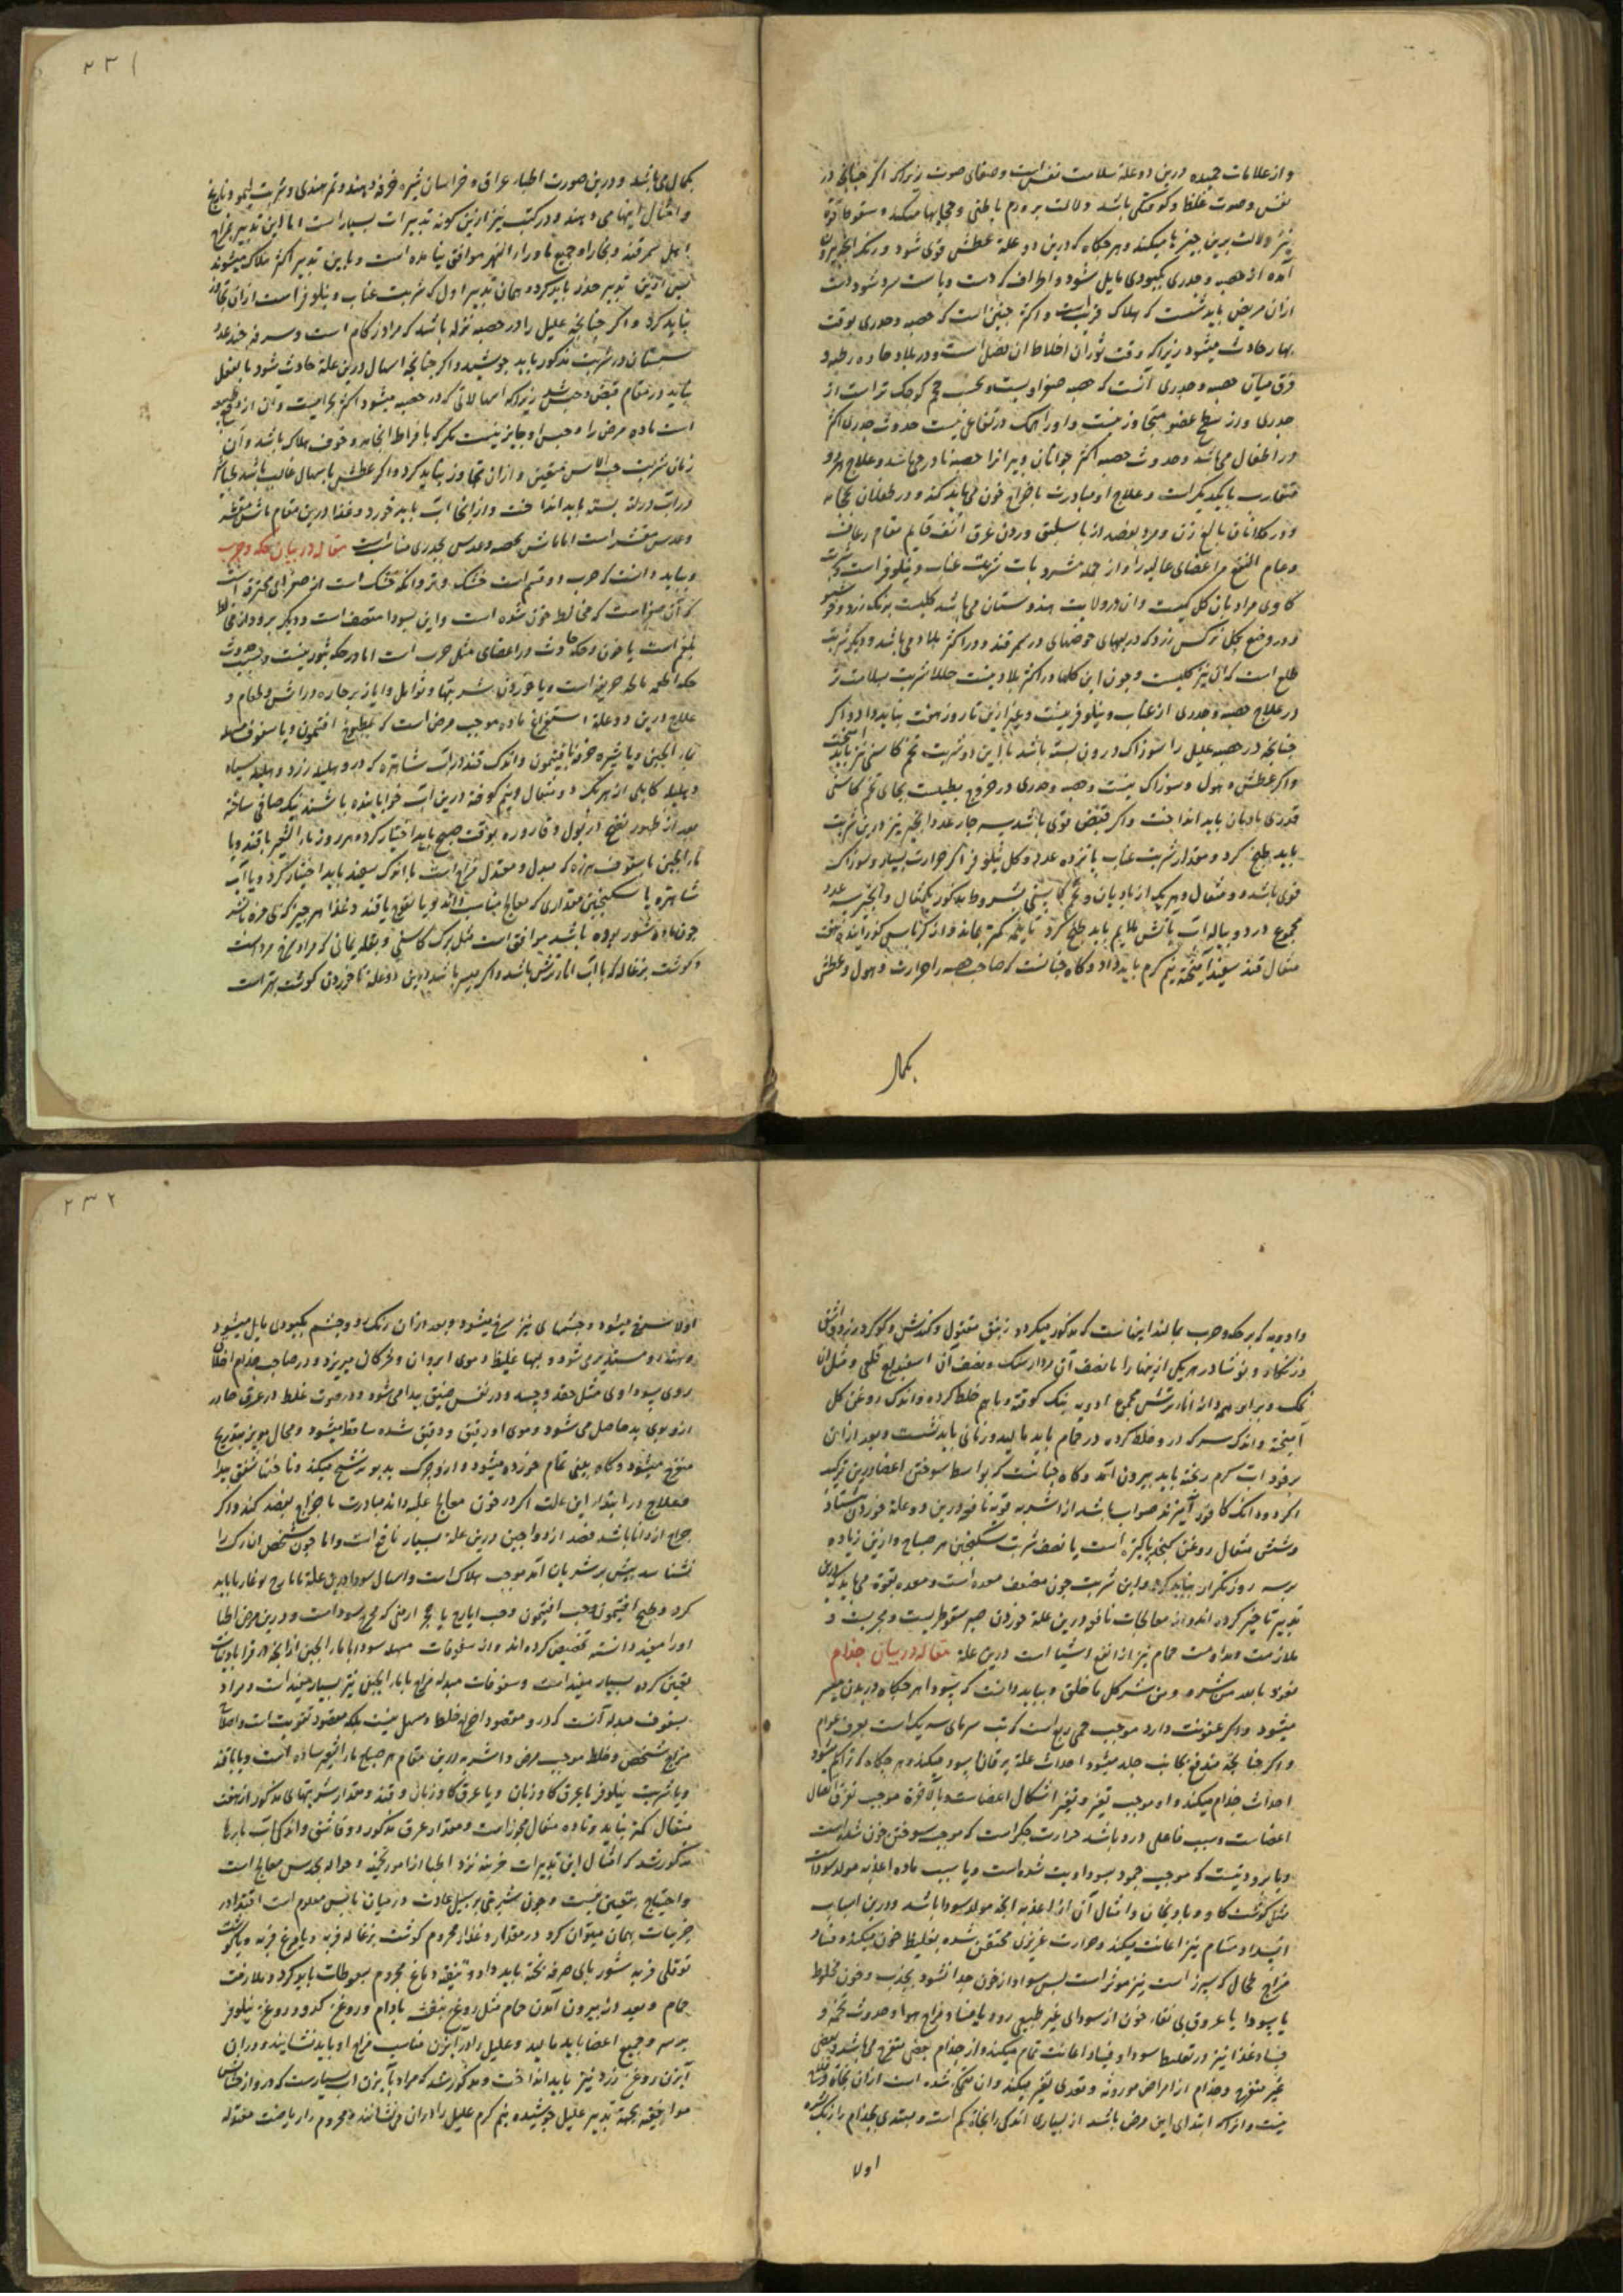 واز علامات حمیده درین دو علة سلامت نفس است وصفای صوت زیراکه اکر چنانچه در
نفس وصوت غلظ وکرفتکی باشد دلالت برورم باطنی میکند وسقوط قوة
نیز دلالت برین چیزها میکند وهرجکاه که درین دو علة عطش قوی شود ورنک انچه بیرون
آمده از حصبه وجدری بکبودی مایل شود واطراف که دست وپاست سرد شود دست
ازان مریض باید شست که بهلاک قریبست واکثر چنین است که حصبه وجدری بوقت
بهار حادث میشود زیراکه وقت ثوران اخلاط ان فصل است ودر بلاد حاره رطبه و
فرق میان حصبه وجدری آنست که حصبه صفراویست وبحسب حجم کوچک تر است از
جدری واز سطح عضو متجاوز نیست واورا سمک وارتفاعی نیست حدوث جدری اکثر
در اطفال می باشد وحدوث حصبه اکثر جوانان وپیرانرا حصبه نادر می باشد وعلاج هر دو
متقارب بایکدیکر است وعلاج او مبادرت باخراج خون می باید کند ودر طفلان بحجامة
ودر کلانان بالغ زن ومرد بفصد از باسلیق وزدن عرق انف قایم مقام رعاف
وعام النفع مر اعضای عالیه را واز جمله مشروبات شربت عناب ونیلوفر است وشربت
کاوی مراد بان کل کیست وان در ولایت هندوستان می باشد کلیست برنک زرد وخوشبو
ودر وضع بکل نرکس زرد که در لبهای حوضهای در سمرقند ودر اکثر بلاد می باشد ودیکر شربت
طلع است که ان نیز کلیست وچون این کلها در اکثر بلاد نیست حالا شربت بسلامت تر
در علاج حصبه وجدری از عناب ونیلوفر نیست وغیر ازین تا روز هفت نباید داد واکر
چنانچه در حصبه علیل را سوزاک درون بسته باشد با این دو شربت تخم کاسنی نیز باید
واکر عطش وهول وسوزاک نیست وحصبه وجدری در خروج بطیست بجای تخم کاسنی
قدری بادیان باید انداخت واکر قبض قوی باشد سه چار عدد انجیر نیز درین شربت
باید طبخ کرد ومقدار شربت عناب پانزده عدد وکل نیلوفر اکر حرارت بسیار وسوزاک
قوی باشد دو مثقال وهر یک از بادیان وتخم کاسنی بشروط مذکور یکمثقال وانجیر سه عدد
مجموع در دو پیاله اب باتش ملایم باید طبخ کرد تا نیمه کمتر بماند واز کرباسی کذرانیده بهفت
مثقال قند سفید آمیخته نیم کرم باید داد وکاه چنانست که صاحب حصبه را حرارت وهول وعطش
بکمال
۲۳۱
بکمال می باشد ودرین صورت اطباء عراق وخراسان شیره خرفه دهند وتمر هندی وشربت لیمو ونارنج
وامثال اینها می دهند ودر کتب نیز ازین کونه تدبیرات بسیار است اما این تدبیر بمزاج
اهل سمرقند وبخارا وجمیع ماوراء النهر موافق نیامده است وباین تدبیر اکثر هلاک میشوند
پس ازین تدبیر حذر باید کرد وهمان تدبیر اول که شربت عناب ونیلوفر است ازان تجاوز
نباید کرد واکر چنانچه علیل را در حصبه نزله باشد که مراد زکام است وسرفه چند عدد
سپستان در شربت مذکور باید جوشید واکر چنانچه اسهال درین علة حادث شود بالفعل
نباید در مقام قبض وحبس شد زیراکه اسهالاتی که در حصبه میشود اکثر بحرانیست وان از دفع طبیعة
است ماده مرض را وحبس او جایز نیست مکر که بافراط انجامد وخوف هلاک باشد وآن
زمان شربت حب الاس متعین وازان تجاوز نباید کرد واکر عطش با اسهال غالب باشد طباشیر
در اب در لته بسته باید انداخت وازانجا اب باید خورد وغذا درین مقام ماش مقشر
وعدس مقشر است اما ماش بحصبه وعدس بجدری مناسب است مقاله در بیان حکه وجرب
وبباید دانست که جرب دو قسم است خشک وتر وانکه خشک است از صفرای محترقه است
که آن صفراست که مخالط خون شده است واین بسودا متصف است ودیکر برودان مخالط
بلغم است با خون وحکه حادث در اعضای مثل جرب است اما در حکه بثور نیست وسبب حدوث
حکه اطعمه مالحه حریفه است ویا خوردن شربتها وتوابل وابازیر حاره در اش وطعام و
علاج درین دو علة استفراغ ماده موجب مرض است که بمطبوخ افتیمون ویا سفوف مسهل
بماء الجبن ویا شیره خرفه بافتیمون واندک قند در اب شاهتره که در وهلیله زرد وهلیله سیاه
وهلیله کابلی از هر یک دو مثقال ونیم کوفته درین اب خوابانیده باشند نیک صافی ساخته
بعد از ظهور نضج در بول وقاروره بوقت صبح باید اختیار کرده هر روز ماء الشعیر باقند ویا
ماء الجبن باسفوف بزره که مبدل ومعتدل مزاج است باندک سفید باید اختیار کرد ویا آب
شاهتره با سکنجبین بمقداری که معالج مناسب داند ویا نقوع باقند وغذا هر چیز که بی مزه باشد
چون ماده شور بوده باشد موافق است مثل برک کاسنی وبقله یمانی که مراد سرخ مرد است
وکوشت بزغاله که با اب انار ترش باشد واکر میسر باشد درین دو علة ناخوردن کوشت بهتر است
وادویه که بر حکه وجرب بمالند اینهاست که مذکور میکردد زیبق مقتول وکندش وکوکرد زرد واشق
وزنکار ونوشادر هر یکی ازینها را با نصف آن مردار سنک ونصف آن اسفیداج قلعی ومثل ان
نمک وبرابر همه دانه انار ترش مجموع ادویه نیک کوفته وباهم خلط کرده واندک روغن کل
آمیخته واندک سرکه در وخلط کرده در حمام باید مالید وزمانی باید نشست وبعد ازان
بر خود اب کرم ریخته باید بیرون آمد وکاه چنانست که بواسطه سوختن اعضا درین ترکیب
اکر دو دانک کافور آمیزند صواب باشد از اشربه قویه نافعه درین دو علة خوردن
وشش مثقال روغن کنجد پاکیزه است با نصف شربت سکنجبین هر صباح وازین زیاده
بر سه روز تکرار نباید کرد واین شربت چون مضعف معده است ومعده بقوة می باید درین
تدبیر تاخیر کرده اند واز معالجات نافعه درین علة خوردن صبر سقوطریست ومجربست و
ملازمت ومداومت حمام نیز از انفع اشیا است درین علة مقاله در بیان جذام
نعوذ بالله من شره ومن شر کل ما خلق وبباید دانست که سودا هر جکاه در بدن منتشر
میشود واکر عفونت دارد موجب حمی ربع است که تب سرمای سه یک است بعرف عوام
واکر چنانچه مندفع بجانب جلد میشود احداث علة یرقان اسود میکند وهر جکاه که متراکم میشود
احداث جذام میکند واو موجب تغیر وتغیر اشکال اعضاست وبالاخرة موجب تفرق اتصال
اعضاست وسبب فاعلی درو باشد حرارت جکر است که موجب سوختن خون شده است
ویا برودتیست که موجب جمود بسوداویت شده است ویا سبب ماده اغذیه مولد سوداست
مثل کوشت کاو وبادنجان وامثال آن از اغذیه انچه مولد سودا باشد ودرین اسباب
انسداد مسام نیز اعانت میکند وحرارت غریزی محتقن شده بتغلیظ خون میکند وفساد
مزاج طحال که سپرز است نیز موثر است پس سودا از خون جدا نشود بجذب وخون مخلوط
با سودا با عروق بی نقاء خون از سودای غیر طبیعی رود یا فساد مزاج هوا وحدوث تخمه و
فساد غذا نیز در تغلیظ سودا وفساد اعانت تمام میکند واز جذام بعضی متقرح می باشد وبعضی
غیر متقرح وجذام از امراض موروثه ومعدی نیز میکند وان متمکن شده است ازان نجاة وخلاص
نیست وانرا که ابتدای این مرض باشد از بسیاری اندکی را نجاة کم است ومبتدی بجذام را رنک بشره
اولا
۲۳۲
اولا سرخ میشود وچشمهای نیز سرخ میشود وبعد ازان رنک رو وچشم بکبودی مایل میشود
ومستدیر می شود ولبها غلیظ وموی ابروان ومژکان میریزد ودر صاحب جذام اخلاق
ردی سوداوی مثل حقد وحسد ودر نفس ضیق پیدا می شود ودر صوت غلظ ودر عرق صادر
ازو بوی بد حاصل می شود وموی او رقیق ودقیق شده ساقط میشود وبحال مویز بتدریج
متقرح میشود وکاه بینی تمام خورده میشود وازو چرک بدبو ترشح میکند وناخنها شقق پیدا
فعلاج در ابتداء این علت اکر در خون معالج غلبه داند مبادرت باخراج بفصد کند واکر
جراح از دانا باشد فصد از دواجین درین علة بسیار نافع است واما چون شخص ان رک را
نشناسد نیش بر شریان آمد موجب هلاک است واسهال سودا درین علة بایارج لوغاذیا باید
کرد وطبیخ افتیمون وحب افتیمون وحب ایارج با حجر ارمنی که مخرج سوداست ودرین مرض اطبا
اورا مفید دانسته تخصیص کرده اند واز سفوفات مسهله سودا بماء الجبن از انچه در قرابادینات
تعیین کرده بسیار مفید است وسفوفات مبدله مزاج بماء الجبن نیز بسیار مفید است ومراد
بسفوف مبدله آنست که درو مقصود اخراج خلط ومسهل نیست بلکه مقصود تقویت است واصلاح
مزاج شخص وخلط موجب مرض واشربه درین مقام هر صباح ماء الشعیر ساده است ویا باقند
ویا شربت نیلوفر بعرق کاوزبان ویا عرق کاوزبان وقند ومقدار شربتهای مذکور از هفت
مثقال کمتر نباید وتا ده مثقال مجوز است ومقدار عرق مذکور دو قاشق واندکی اب بارها
مذکور شد که امثال این تدبیرات جزئیه نزد اطبا از امور تخمینه وحواله بحدس معالج است
واحتیاج بتعیین نیست وچون شربتی بر سبیل عادت در میان ناس معلوم است اقتدا در
جزئیات بهمان میتوان کرد در مقدار وغذا مجذوم کوشت بزغاله فربه ویا مرغ فربه ویا کوشت
توقلی فربه شوربای صرفه پخته باید داد وتنقیه دماغ مجذوم بسعوطات باید کرد وملازمت
حمام وبعد از بیرون آمدن حمام مثل روغن بنفشه بادام وروغن کدو وروغن نیلوفر
بر سر وجمیع اعضا باید مالید وعلیل را در آبزن مناسب مزاج او باید نشانید ودران
آبزن روغن زرد نیز باید انداخت ومذکور شد که مراد بآبزن اب بسیارست که در واز حشایش
موافقه بجهة تدبیر علیل جوشیده نیم کرم علیل را دران می نشانند ومجذوم را ریاضت معتدله